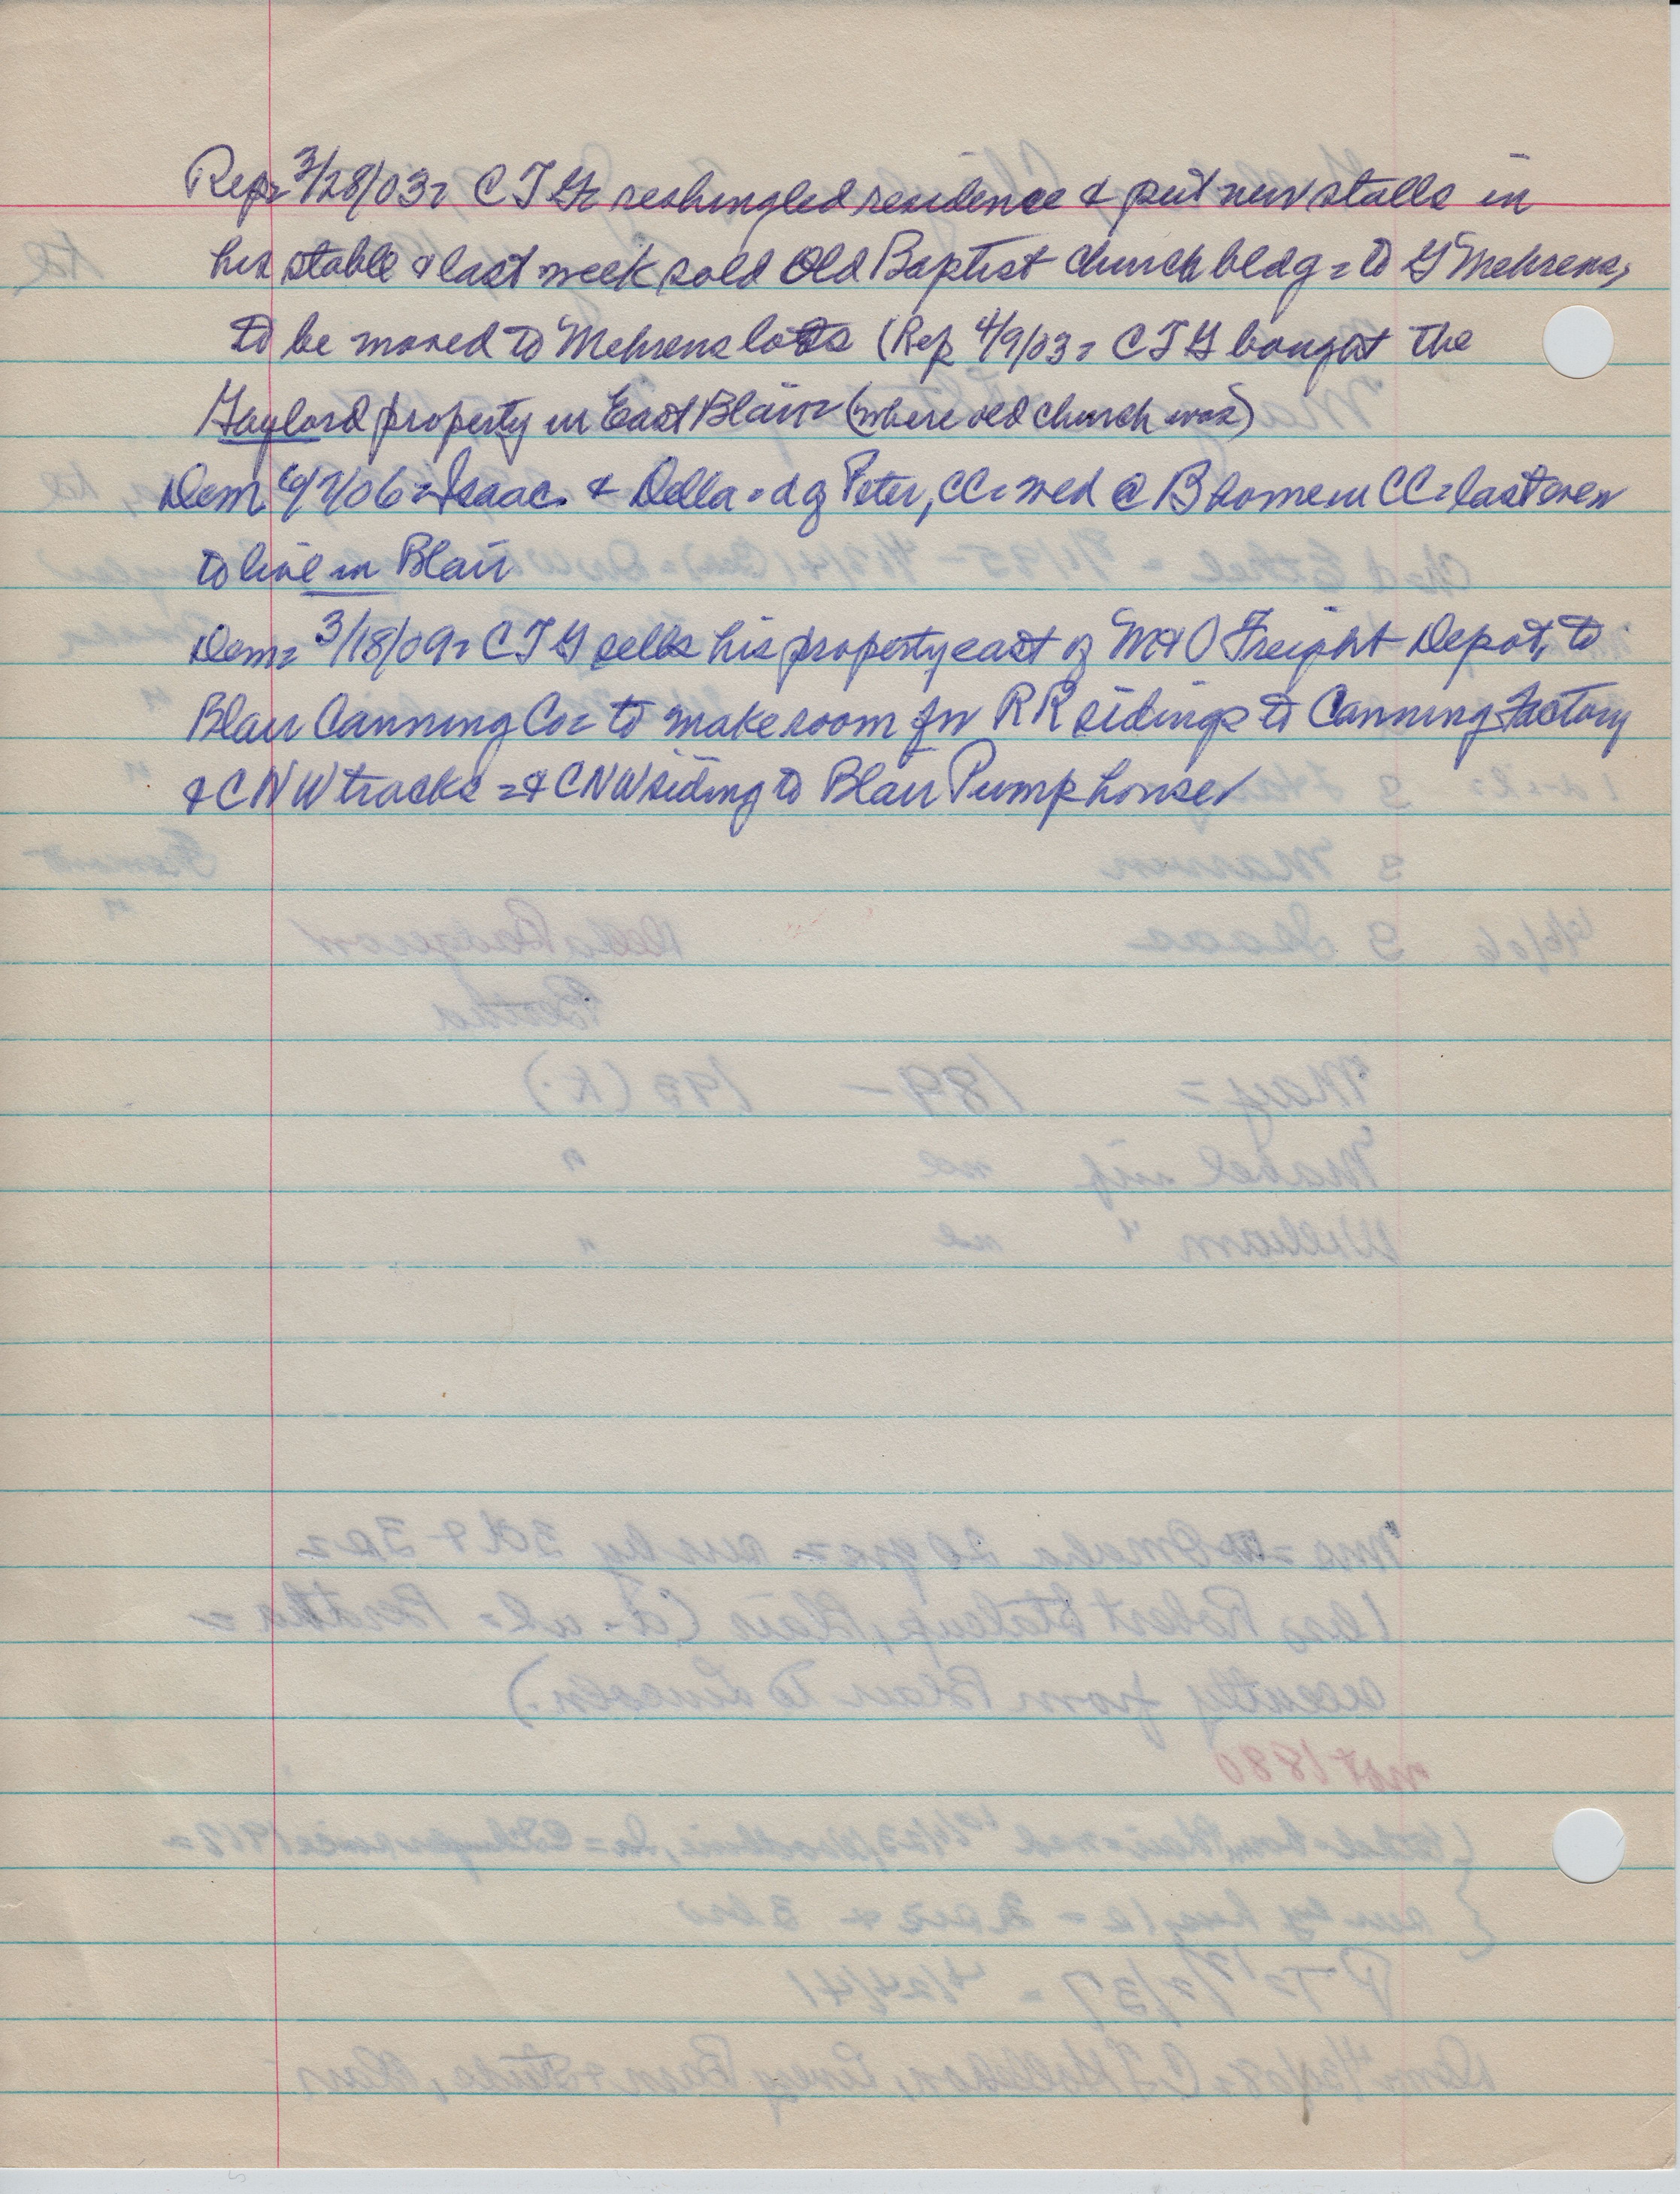 Rep= 3/28/03= C T G= reshingled residence & put new stalls in
his stable & last week sold Old Baptist Church bldg = to G Mehrens,
to be moved to Mehrens lots (Rep 4/9/03= C T G bought the
Gaylord property in East Blair= (where old church was)
Dem 4/7/06= Isaac. & Della = d of Peter, CC= wed @ B home in CC= last eve=
to live in Blair
Dem= 3/18/09= C T G sells his property east of M&O Freight Depot, to
Blair Canning Co= to make room for RR sidings to Canning Factory
& CNW tracks =& CNW siding to Blair Pump house=